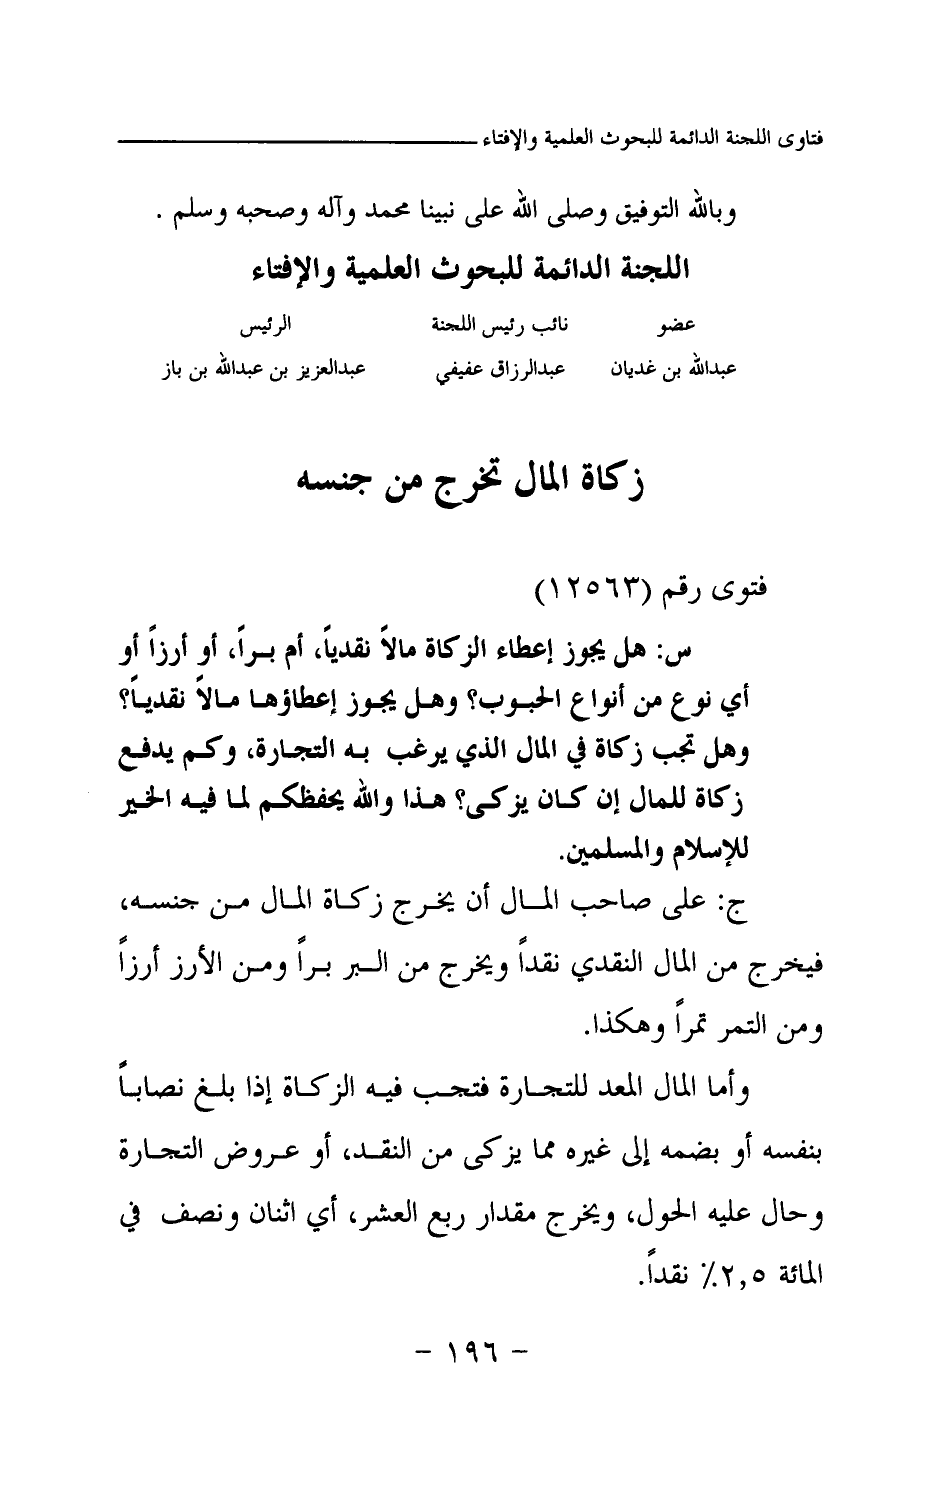 فتاوى اللجنة الدائمة للبحوث العلمية والإفتاء
وبالله التوفيق وصلى الله على نبينا محمد وآله وصحبه وسلم .
اللجنة الدائمة للبحوث العلمية والإفتاء
عضو نائب رئيس اللجنة الرئيس
عبدالله بن غديان عبدالرزاق عفيفي عبدالعزيز بن عبدالله بن باز
زكاة المال تخرج من جنسه
فتوى رقم (١٢٥٦٣)
س: هل يجوز إعطاء الزكاة مالاً نقدياً، أم براً، أو أرزاً أو
أي نوع من أنواع الحبوب؟ وهل يجوز إعطاؤها مالاً نقدياً؟
وهل تجب زكاة في المال الذي يرغب به التجارة، وكم يدفع
زكاة للمال إن كان يزكى؟ هذا والله يحفظكم لما فيه الخير
للإسلام والمسلمين.
ج: على صاحب المال أن يخرج زكاة المال من جنسه،
فيخرج من المال النقدي نقداً ويخرج من البر براً ومن الأرز أرزاً
ومن التمر تمراً وهكذا.
وأما المال المعد للتجارة فتجب فيه الزكاة إذا بلغ نصاباً
بنفسه أو بضمه إلى غيره مما يزكى من النقد، أو عروض التجارة
وحال عليه الحول، ويخرج مقدار ربع العشر، أي اثنان ونصف في
المائة ٢,٥٪ نقداً.
- ١٩٦ -